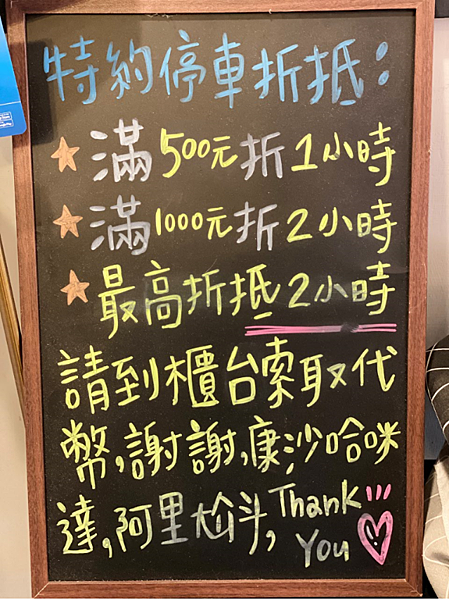 特約停車折抵：
滿500元折1小時
滿1000元折2小時
最高折抵2小時
請到櫃台索取代
幣,謝謝,康沙哈咪
達,阿里尬斗,Thank
You